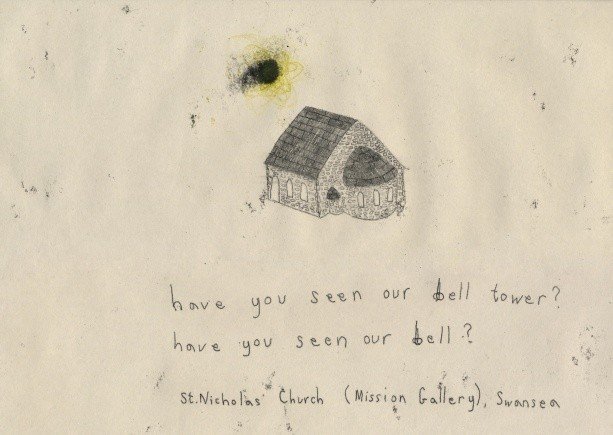 have you seen our bell tower?
have you seen our bell?
St.Nicholas' Church (Mission Gallery), Swansea